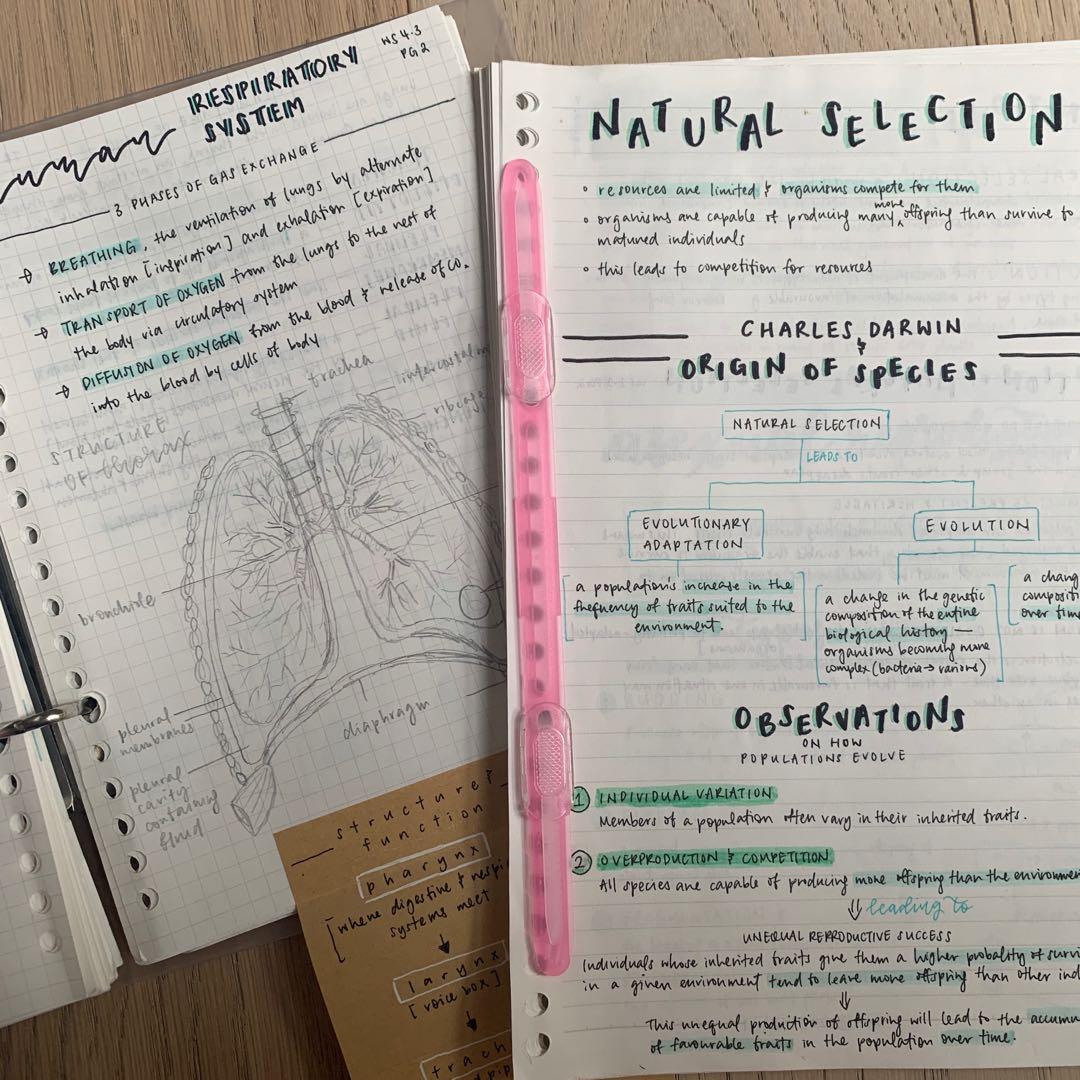 human
RESPIRATORY
SYSTEM
WS 4.3
PG 2
3 PHASES OF GAS EXCHANGE
BREATHING, the ventilation of lungs by alternate
inhalation [inspiration] and exhalation [expiration]
TRANSPORT OF OXYGEN from the lungs to the rest of
the body via circulatory system
DIFFUSION OF OXYGEN from the blood & release of CO₂
into the blood by cells of body
STRUCTURE
OF thorax
trachea
intercostal m
ribcage
bronchiole
pleural
membranes
pleural
cavity
containing
fluid
diaphragm
structure &
function
pharynx
[where digestive & respi
systems meet
larynx
[voice box]
trach
NATURAL SELECTION
resources are limited & organisms compete for them
organisms are capable of producing many more offspring than survive to
matured individuals
this leads to competition for resources
CHARLES DARWIN
&
ORIGIN OF SPECIES
NATURAL SELECTION
LEADS TO
EVOLUTIONARY
ADAPTATION
EVOLUTION
a population's increase in the
frequency of traits suited to the
environment.
a change in the genetic
composition of the entire
biological history —
organisms becoming more
complex (bacteria → various)
a chang
compositi
over time
OBSERVATIONS
ON HOW
POPULATIONS EVOLVE
1 INDIVIDUAL VARIATION
Members of a population often vary in their inherited traits.
2 OVERPRODUCTION & COMPETITION
All species are capable of producing more offspring than the environmen
⇓ leading to
UNEQUAL REPRODUCTIVE SUCCESS
Individuals whose inherited traits give them a higher probality of survi
in a given environment tend to leave more offspring than other ind
⇓
This unequal production of offspring will lead to the accumu
of favourable traits in the population over time.